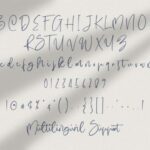 BCDEFGHIJKLMNO
RSTUVWXYZ
bcdefghijklmnopqrstuvwx
0123456789
Multilingual Support